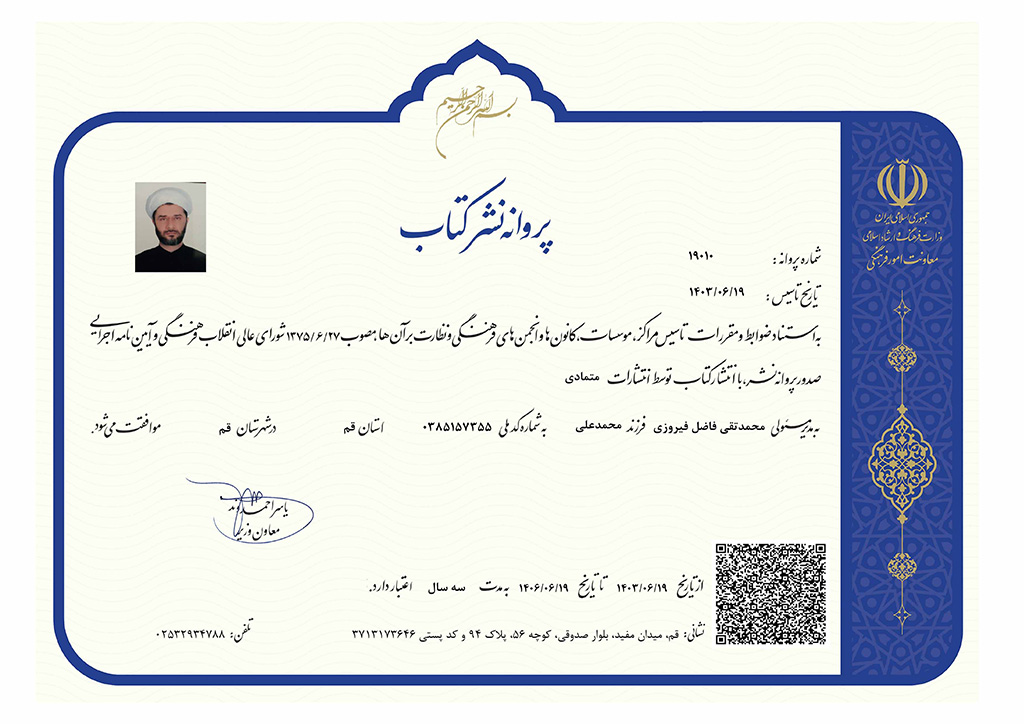 بسم الله الرحمن الرحیم
جمهوری اسلامی ایران
وزارت فرهنگ و ارشاد اسلامی
معاونت امور فرهنگی
پروانه نشر کتاب
شماره پروانه : ۱۹۰۱۰
تاریخ تاسیس : ۱۴۰۳/۰۶/۱۹
به استناد ضوابط و مقررات تاسیس مراکز، موسسات، کانون ها و انجمن های فرهنگی و نظارت بر آن ها مصوب ۱۳۷۵/۶/۲۷ شورای عالی انقلاب فرهنگی و آیین نامه اجرایی
صدور پروانه نشر، با انتشار کتاب توسط انتشارات متمادی
به مدیر مسئولی محمدتقی فاضل فیروزی فرزند محمدعلی به شماره کد ملی ۰۳۸۵۱۵۷۳۵۵ استان قم در شهرستان قم موافقت می شود.
یاسر احمدوند
معاون وزیر
از تاریخ ۱۴۰۳/۰۶/۱۹ تا تاریخ ۱۴۰۶/۰۶/۱۹ به مدت سه سال اعتبار دارد.
نشانی: قم، میدان مفید، بلوار صدوقی، کوچه ۵۶، پلاک ۹۴ و کد پستی ۳۷۱۳۱۷۳۶۴۶ تلفن: ۰۲۵۳۲۹۳۴۷۸۸